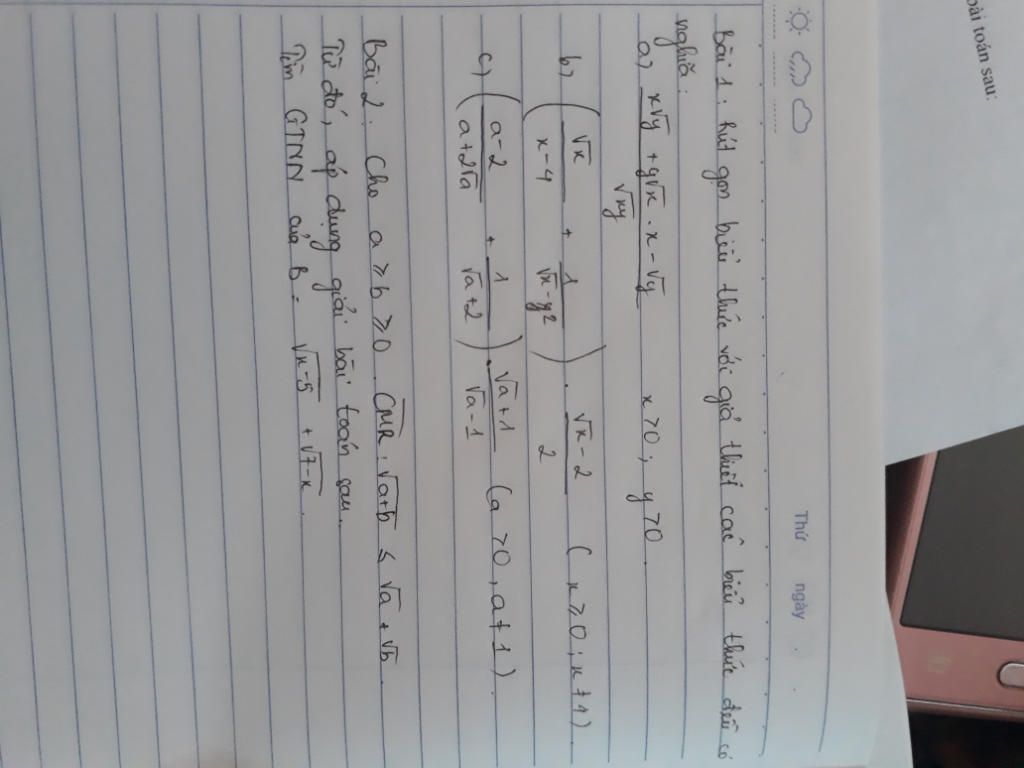 oài toán sau:
Thứ ngày
Bài 1. Rút gọn biểu thức với giả thiết các biểu thức đều có
nghĩa.
a) (x√y + y√x . x - √y) / √xy x > 0 ; y > 0.
b) (√x / (x - 4) + 1 / (√x - y²)) . (√x - 2) / 2 (x ≥ 0 ; x ≠ 4).
c) ((a - 2) / (a + 2√a) + 1 / (√a + 2)) . (√a + 1) / (√a - 1) (a > 0, a ≠ 1).
Bài 2. Cho a ≥ b ≥ 0. CMR: √(a+b) ≤ √a + √b.
Từ đó, áp dụng giải bài toán sau.
Tìm GTNN của B = √(x-5) + √(7-x).